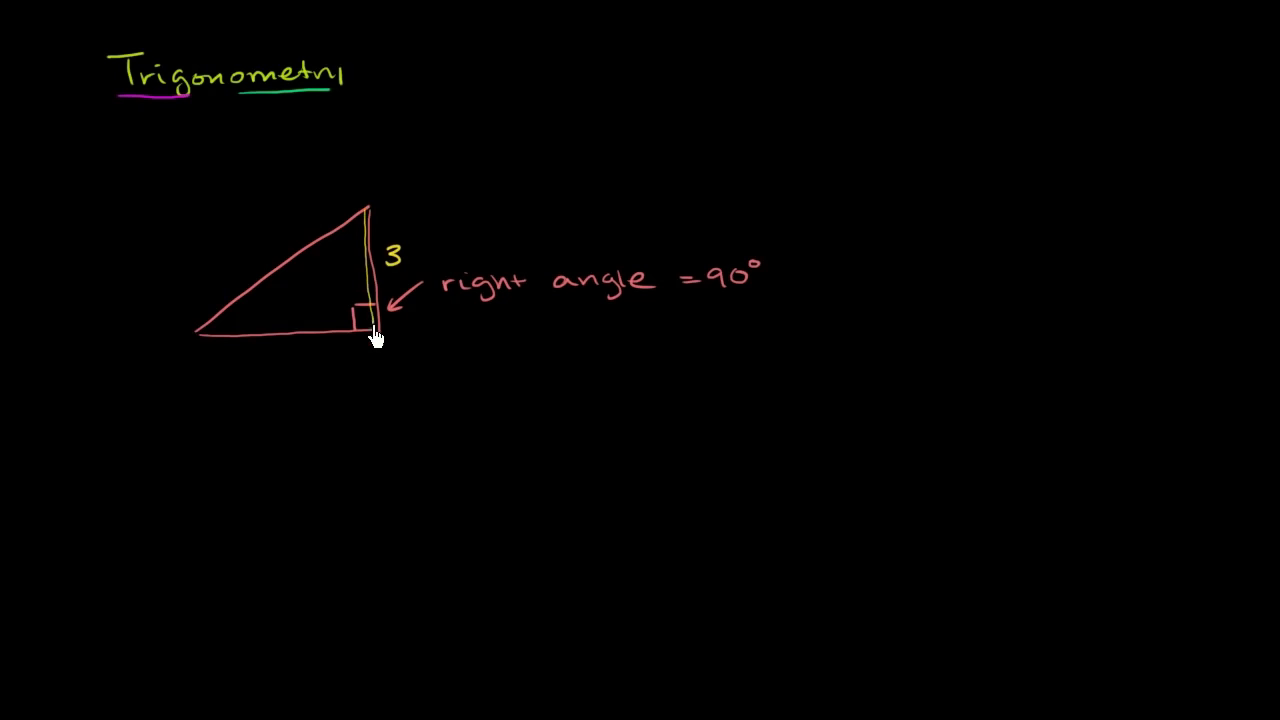 Trigonometry
3
right angle = 90°